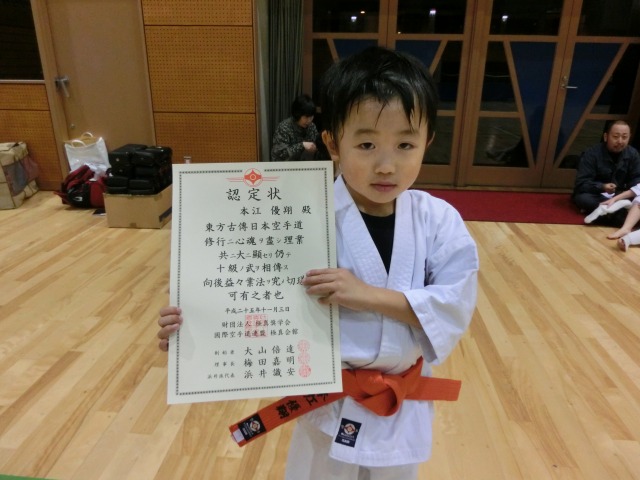 認定状
本江 優翔 殿
東方古傳日本空手道
修行ニ心魂ヲ盡シ理業
共ニ大ニ顯セリ仍テ
十級ノ武ヲ相傳ス
向後益々業法ヲ究ノ切瑳
可有之者也
平成二十五年十一月三日
財団法人 極真奨学会
国際空手道連盟 極真会館
創始者 大山倍達
理事長 梅田嘉明
浜井派代表 浜井識安